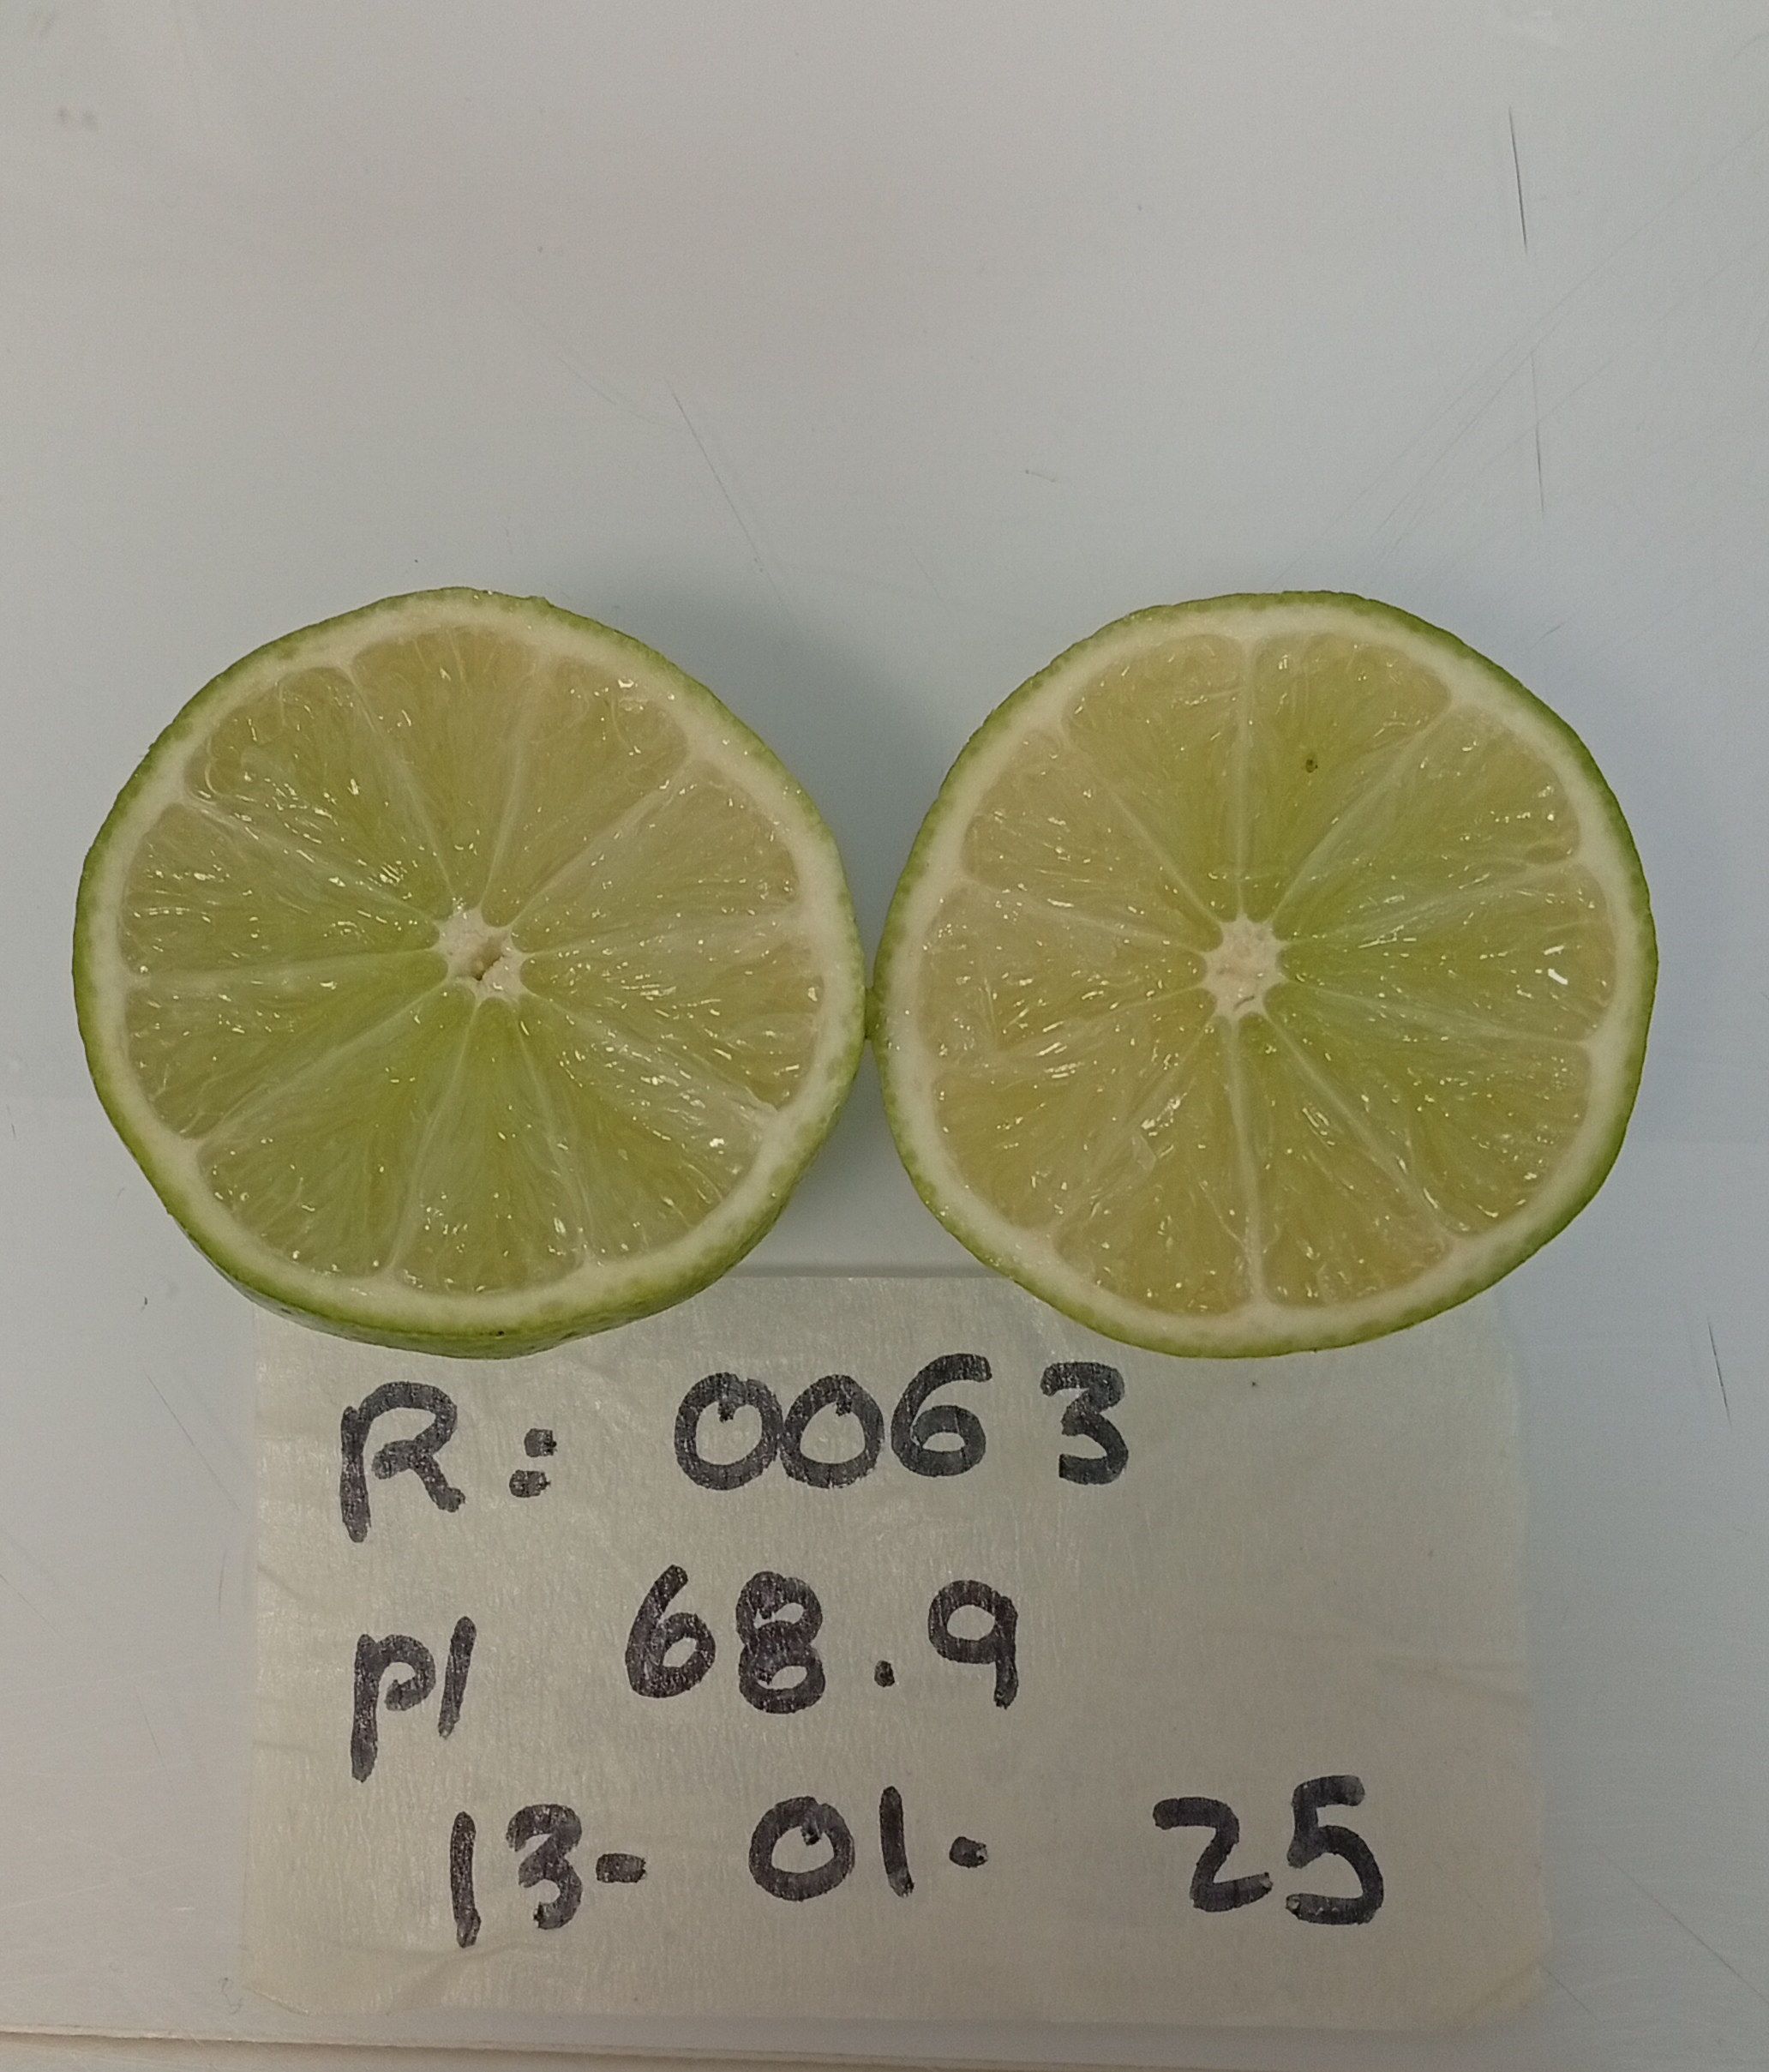 R: 0063
P/ 68.9
13-01-25